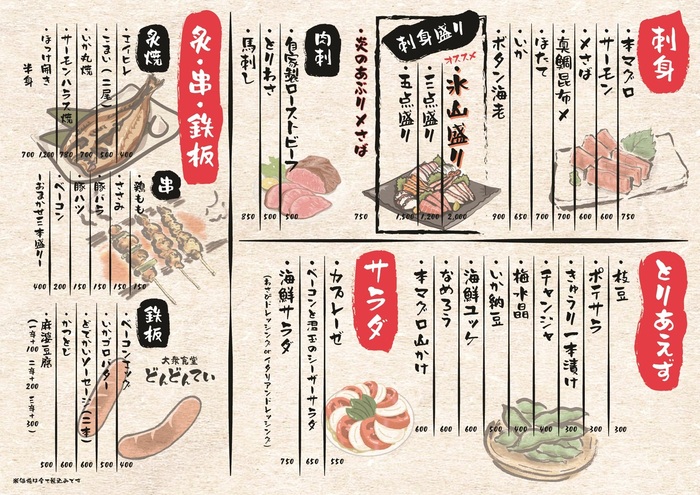 刺身
・本マグロ 750
・サーモン 600
・〆さば 600
・真鯛昆布〆 700
・ほたて 700
・いか 650
・ボタン海老 900
刺身盛り
オススメ
・氷山盛り 2,000
・三点盛り 1,200
・五点盛り 1,500
・炎のあぶり〆さば 750
肉刺
・自家製ローストビーフ 500
・とりわさ 500
・馬刺し 850
炙・串・鉄板
炙焼
・エイヒレ 400
・こまい(二尾) 500
・いか丸焼 700
・サーモンハラス焼 780
・ほっけ開き 1,200
半身 700
串
・鶏もも 150
・ささみ 150
・豚バラ 150
・豚ハツ 150
・ベーコン 200
・おまかせ三本盛り 400
鉄板
・ベーコンエッグ 400
・いかゴロバター 500
・どでかいソーセージ(二本) 600
・かつとじ 600
・麻婆豆腐 500
(一辛+100 二辛+200 三辛+300)
大衆食堂
どんどんてい
とりあえず
・枝豆 300
・ポテサラ 300
・きゅうり一本漬け 300
・チャンジャ 400
・梅水晶 400
・いか納豆
・海鮮ユッケ 600
・なめろう 600
・本マグロ山かけ 600
サラダ
・カプレーゼ 550
・ベーコンと温玉のシーザーサラダ 650
・海鮮サラダ 750
(わさびドレッシングorイタリアンドレッシング)
※価格は全て税込みです